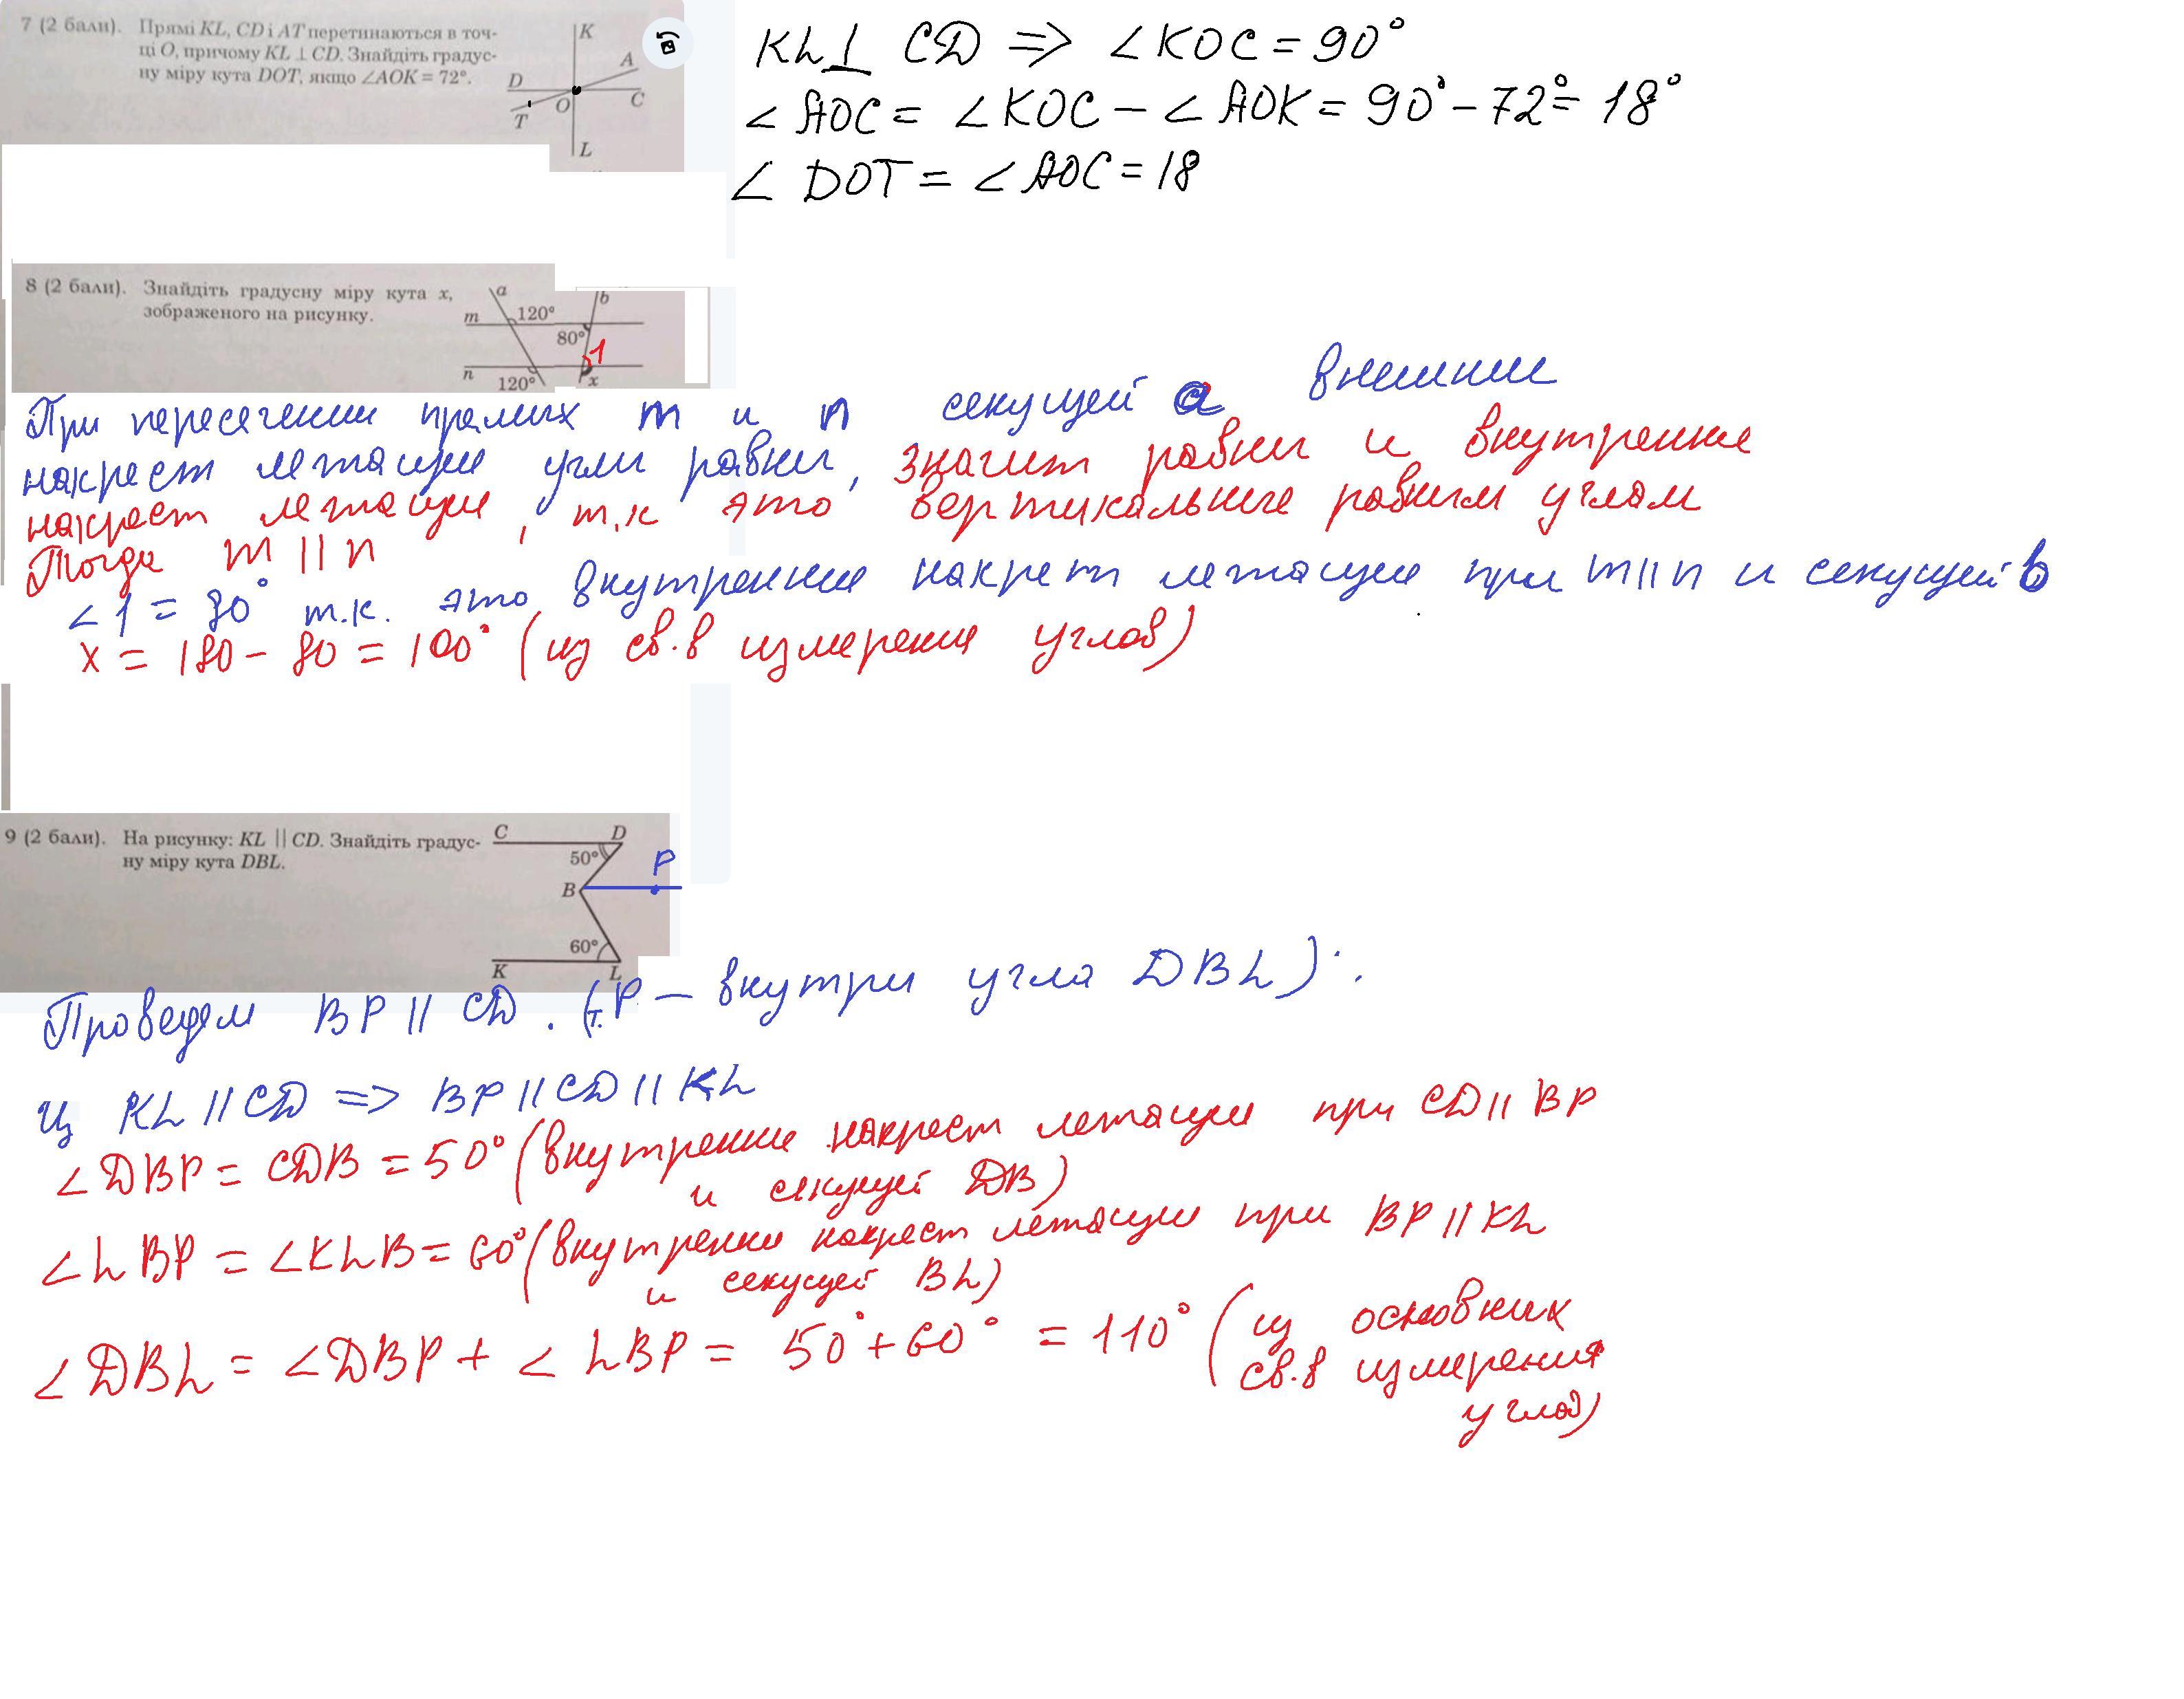 7 (2 бали). Прямі KL, CD і AT перетинаються в точ-
ці O, причому KL ⊥ CD. Знайдіть градус-
ну міру кута DOT, якщо ∠AOK = 72°.
K
A
D
O
C
T
L
KL⊥ CD => ∠KOC = 90°
∠AOC = ∠KOC - ∠AOK = 90° - 72° = 18°
∠DOT = ∠AOC = 18
8 (2 бали). Знайдіть градусну міру кута x,
зображеного на рисунку.
a
b
m
120°
80°
1
n
120°
x
При пересечении прямых m и n секущей a внешние
накрест лежащие углы равны, значит равны и внутренние
накрест лежащие, т.к это вертикальные равным углам
Тогда m || n
∠1 = 80° т.к. это внутренние накрест лежащие при m||n и секущей b
x = 180 - 80 = 100° (из св.в измерения углов)
9 (2 бали). На рисунку: KL || CD. Знайдіть градус-
ну міру кута DBL.
C
D
50°
P
B
60°
K
L
Проведем BP || CD. (т. P - внутри угла DBL).
из KL || CD => BP || CD || KL
∠DBP = CDB = 50° (внутренние накрест лежащие при CD || BP
и секущей DB)
∠LBP = ∠KLB = 60° (внутренние накрест лежащие при BP || KL
и секущей BL)
∠DBL = ∠DBP + ∠LBP = 50° + 60° = 110° (из основных
св.в измерения
углов)